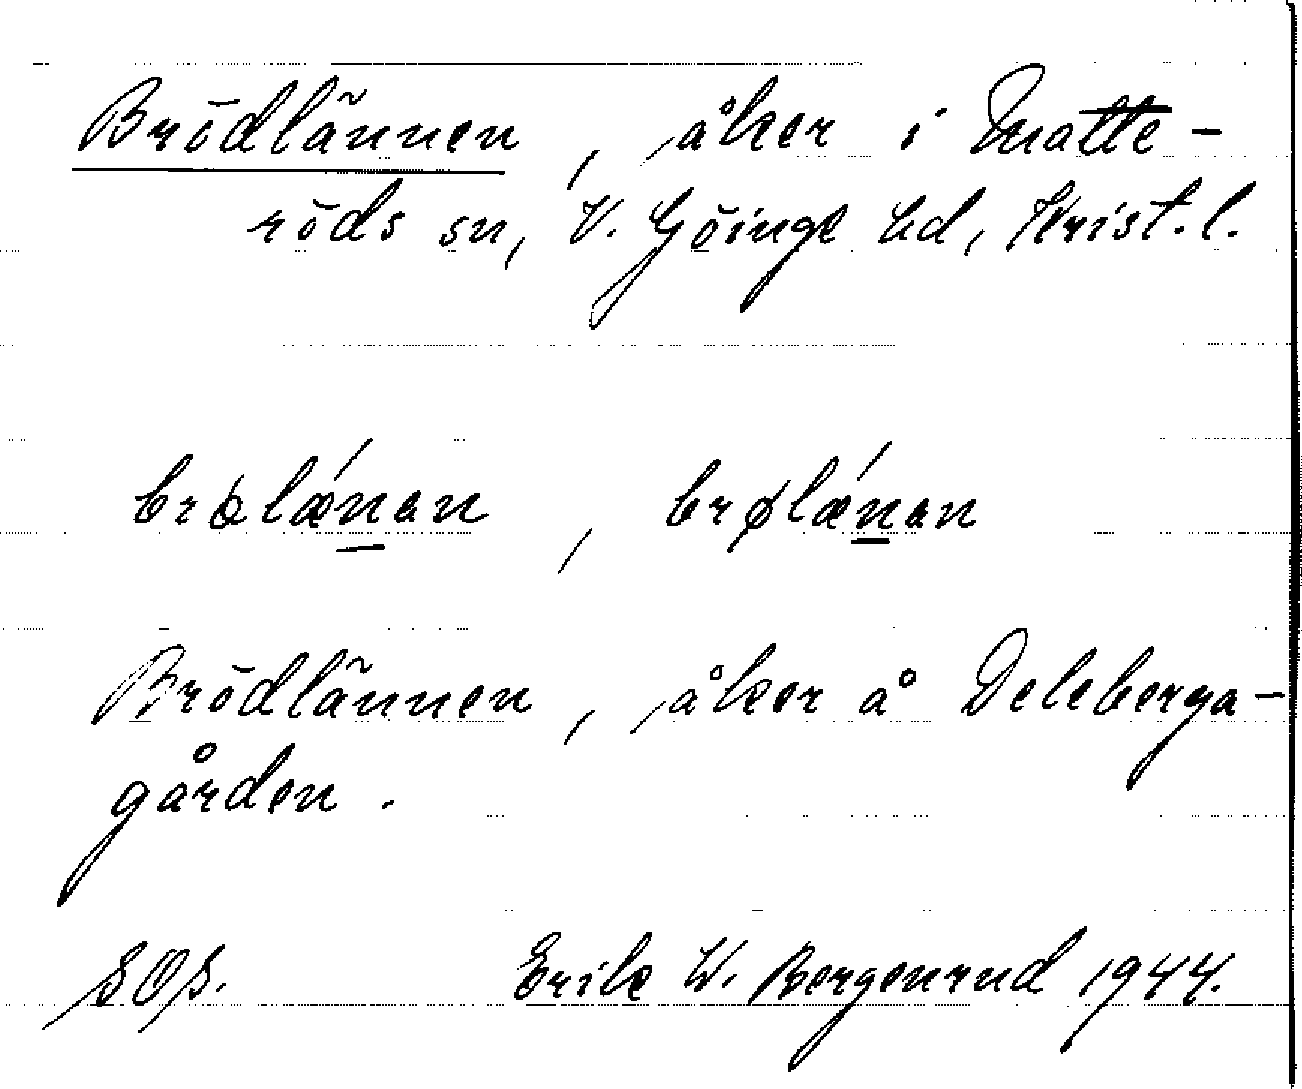 Brödlännen, åker i Matte-
röds sn, V. Göinge hd, Krist. l.
brølæ´nan, brølæ´nan
Brödlännen, åker å Deleberga-
gården.
Erik W. Bergenrud 1944.